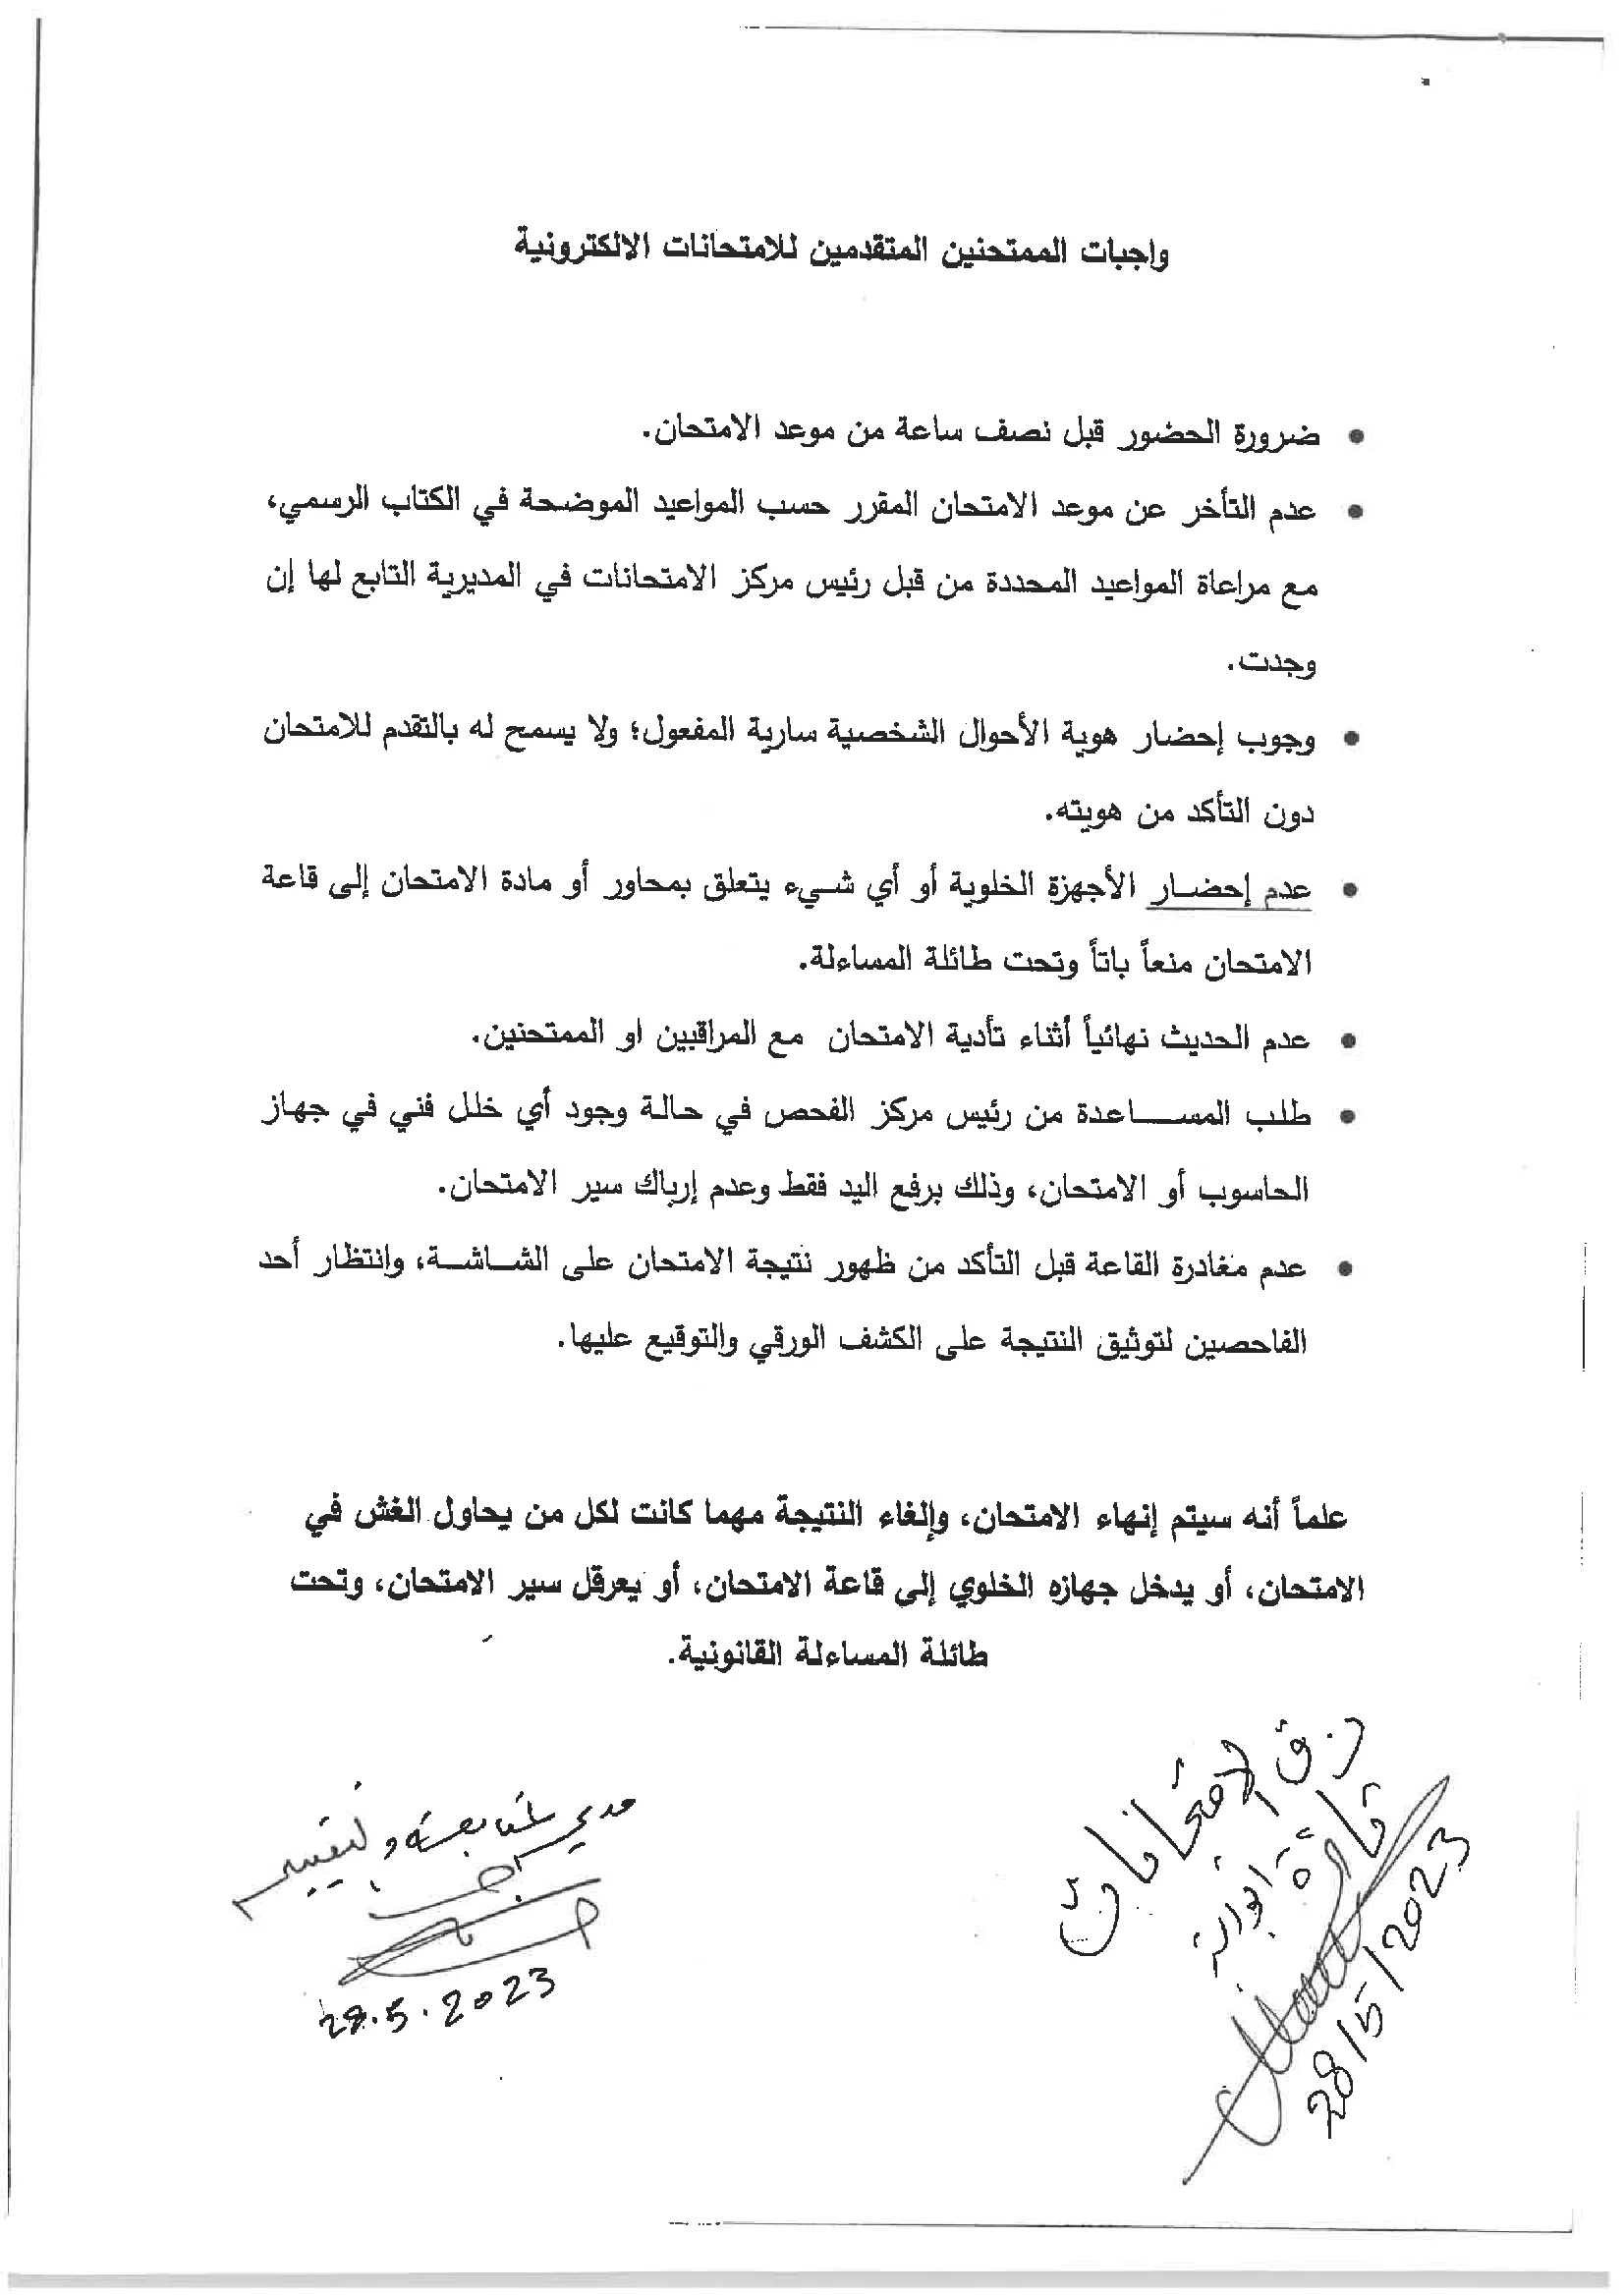 واجبات الممتحنين المتقدمين للامتحانات الالكترونية
• ضرورة الحضور قبل نصف ساعة من موعد الامتحان.
• عدم التأخر عن موعد الامتحان المقرر حسب المواعيد الموضحة في الكتاب الرسمي،
مع مراعاة المواعيد المحددة من قبل رئيس مركز الامتحانات في المديرية التابع لها إن
وجدت.
• وجوب إحضار هوية الأحوال الشخصية سارية المفعول؛ ولا يسمح له بالتقدم للامتحان
دون التأكد من هويته.
• عدم إحضار الأجهزة الخلوية أو أي شيء يتعلق بمحاور أو مادة الامتحان إلى قاعة
الامتحان منعاً باتاً وتحت طائلة المساءلة.
• عدم الحديث نهائياً أثناء تأدية الامتحان مع المراقبين او الممتحنين.
• طلب المساعدة من رئيس مركز الفحص في حالة وجود أي خلل فني في جهاز
الحاسوب أو الامتحان، وذلك برفع اليد فقط وعدم إرباك سير الامتحان.
• عدم مغادرة القاعة قبل التأكد من ظهور نتيجة الامتحان على الشاشة، وانتظار أحد
الفاحصين لتوثيق النتيجة على الكشف الورقي والتوقيع عليها.
علماً أنه سيتم إنهاء الامتحان، وإلغاء النتيجة مهما كانت لكل من يحاول الغش في
الامتحان، أو يدخل جهازه الخلوي إلى قاعة الامتحان، أو يعرقل سير الامتحان، وتحت
طائلة المساءلة القانونية.
الامتحانات
28/5/2023
مدير
28.5.2023